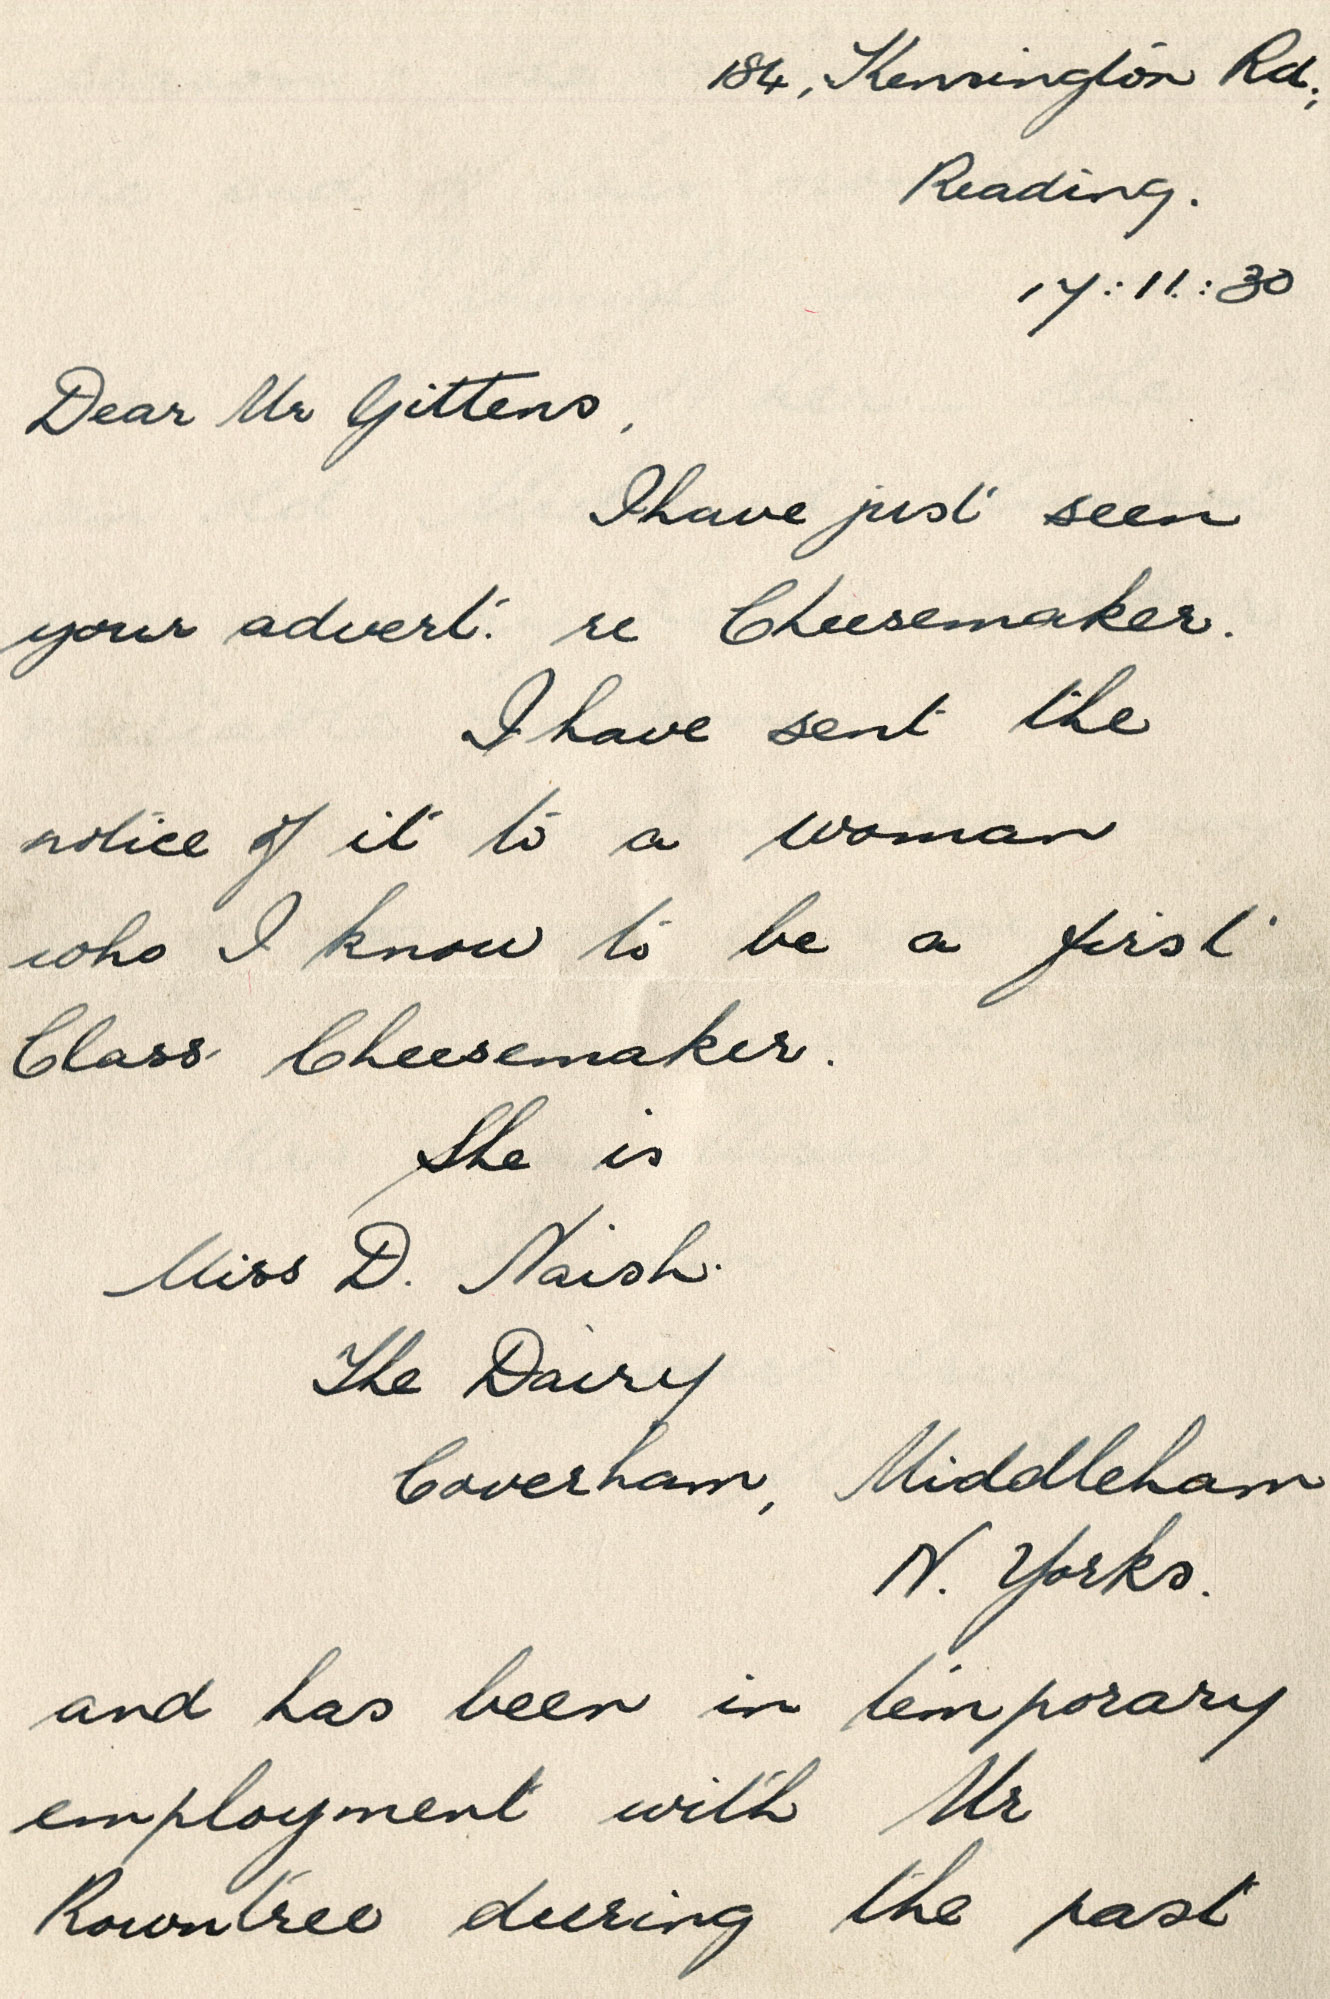 184, Kensington Rd;
Reading.
17:11:30
Dear Mr Gittens,
I have just seen
your advert. re Cheesemaker.
I have sent the
notice of it to a woman
who I know to be a first
Class Cheesemaker.
She is
Miss D. Naish.
The Dairy
Coverham, Middleham
N. Yorks.
and has been in temporary
employment with Mr
Rowntree during the past